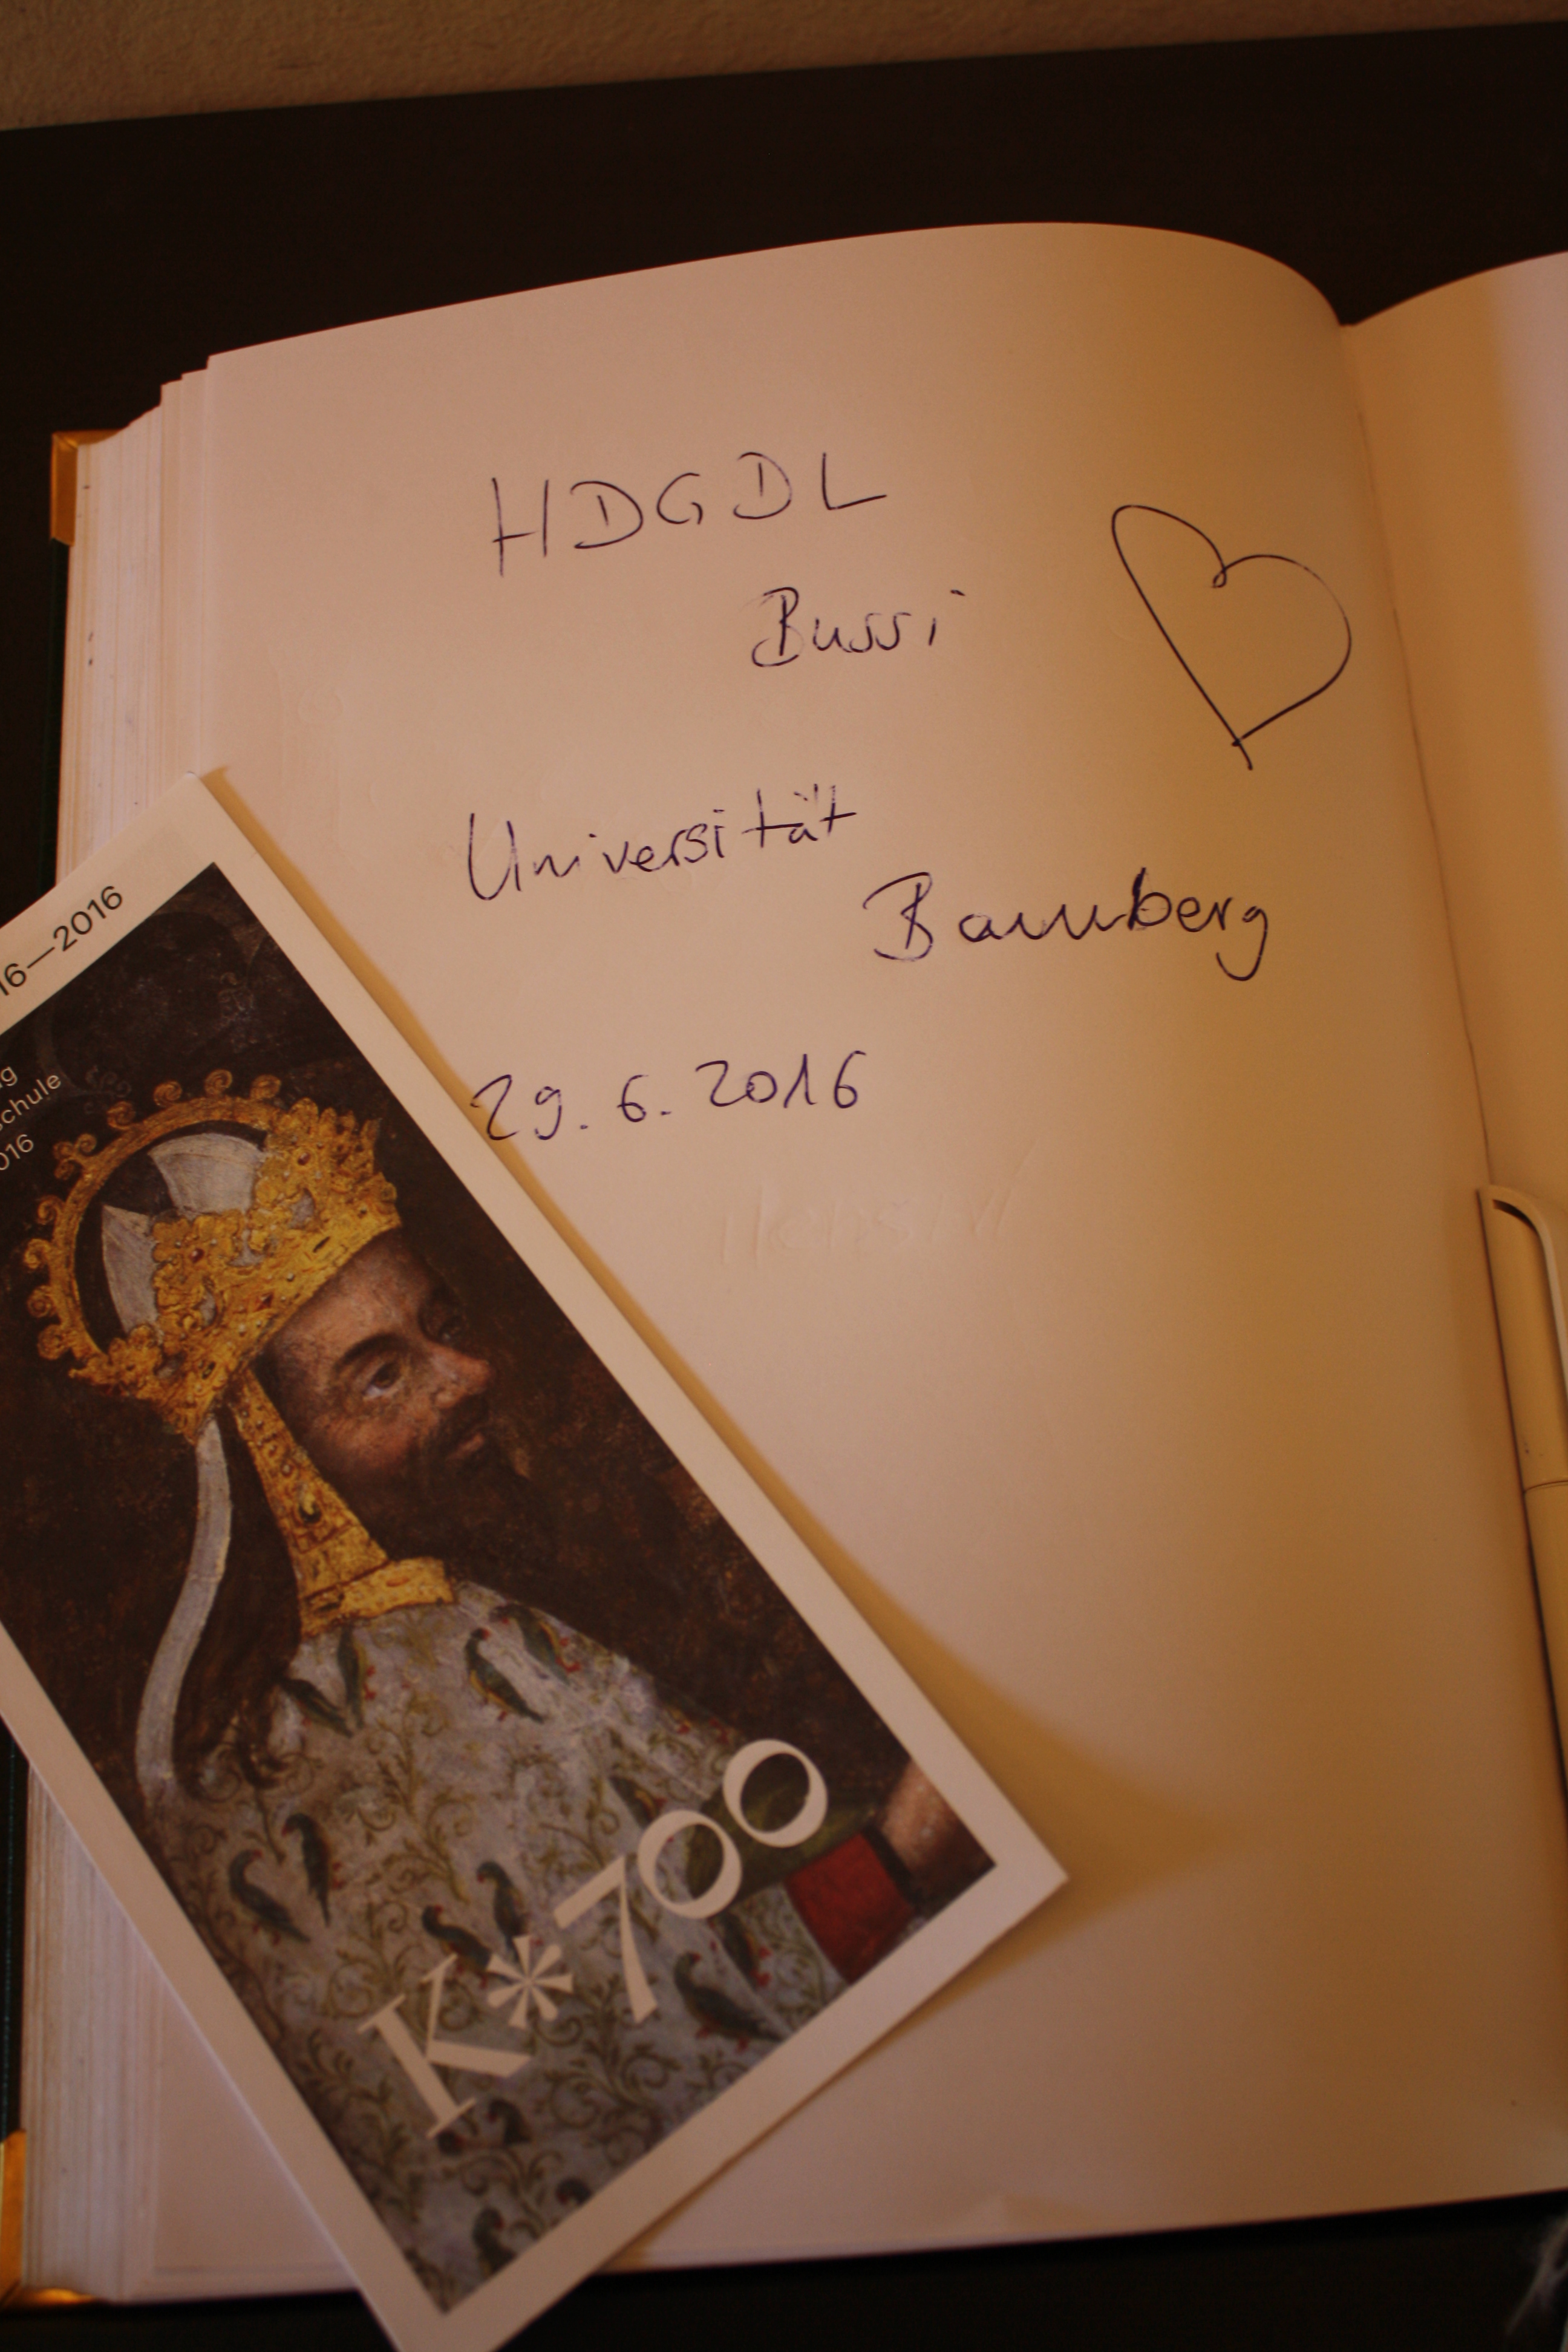 HDGDL
Bussi
Universität
Bamberg
29.6.2016
16—2016
chule
016
K*700